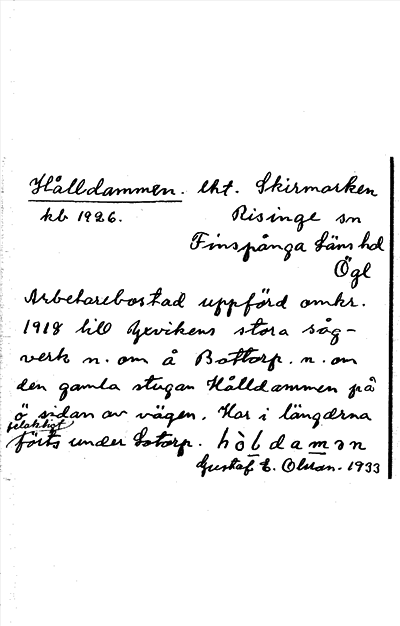 Hålldammen. lht. Skirmarken
kb 1926. Risinge sn
Finspånga läns hd
Ögl
Arbetarebostad uppförd omkr.
1918 till Yxvikens stora såg-
verk n. om å Bottorp. n. om
den gamla stugan Hålldammen på
ö sidan av vägen. Har i längderna
felaktigt
förts under Sätorp. hòldamən
Gustaf E. Olsson. 1933